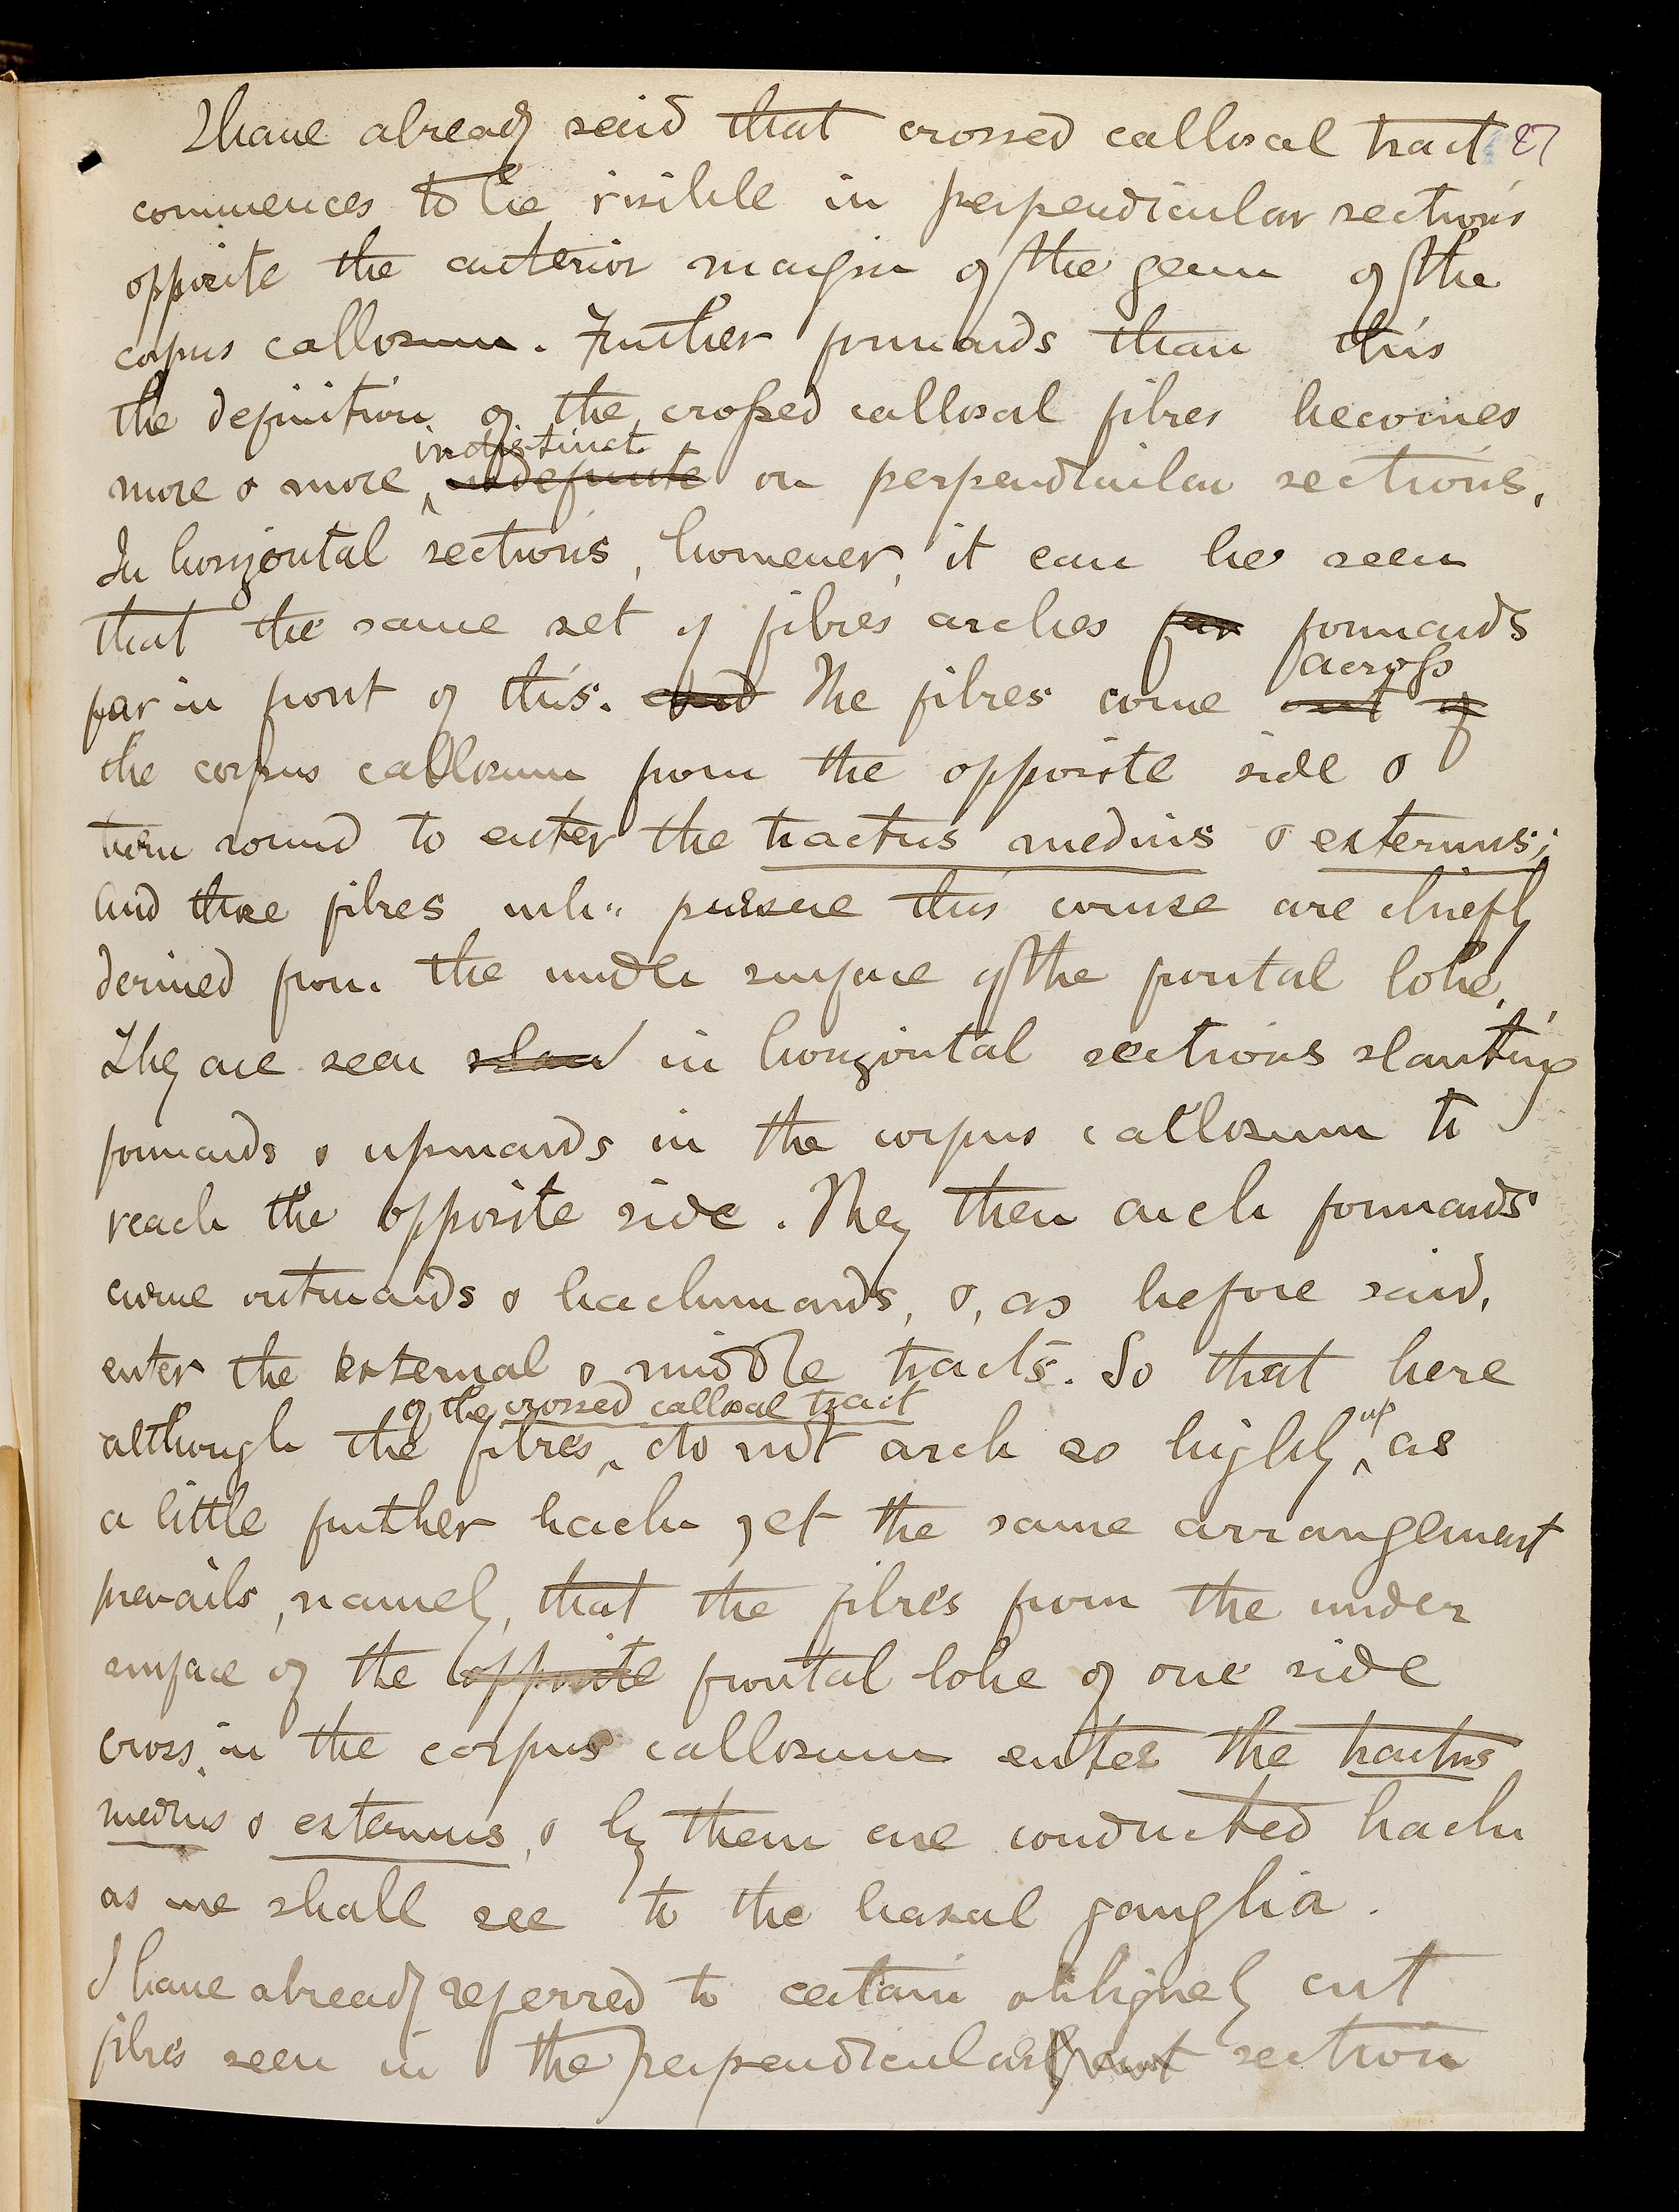 I have already said that crossed callosal tract 27
commences to be visible in perpendicular sections
opposite the anterior margin of the genu of the
corpus callosum. Further forwards than this
the definition of the crossed callosal fibres becomes
indistinct
more & more ^ indefinite on perpendicular sections.
In horizontal sections, however, it can be seen
that the same set of fibres arches far forwards
across
far in front of this. and The fibres come out of
the corpus callosum from the opposite side &
turn round to enter the tractus medius & externus;
and those fibres wh" pursue this course are chiefly
derived from the under surface of the frontal lobe.
They are seen in horizontal sections slanting
forwards & upwards in the corpus callosum to
reach the opposite side. They then arch forwards
curve outwards & backwards, &, as before said,
enter the external & middle tracts. So that here
of the crossed callosal tract up
although the fibres ^ do not arch so highly ^ as
a little further back yet the same arrangement
prevails, namely, that the fibres from the under
surface of the opposite frontal lobe of one side
cross in the corpus callosum enter the tractus
medius & externus, & by them are conducted back
as we shall see to the basal ganglia.
I have already referred to certain obliquely cut
fibres seen in the perpendicular section